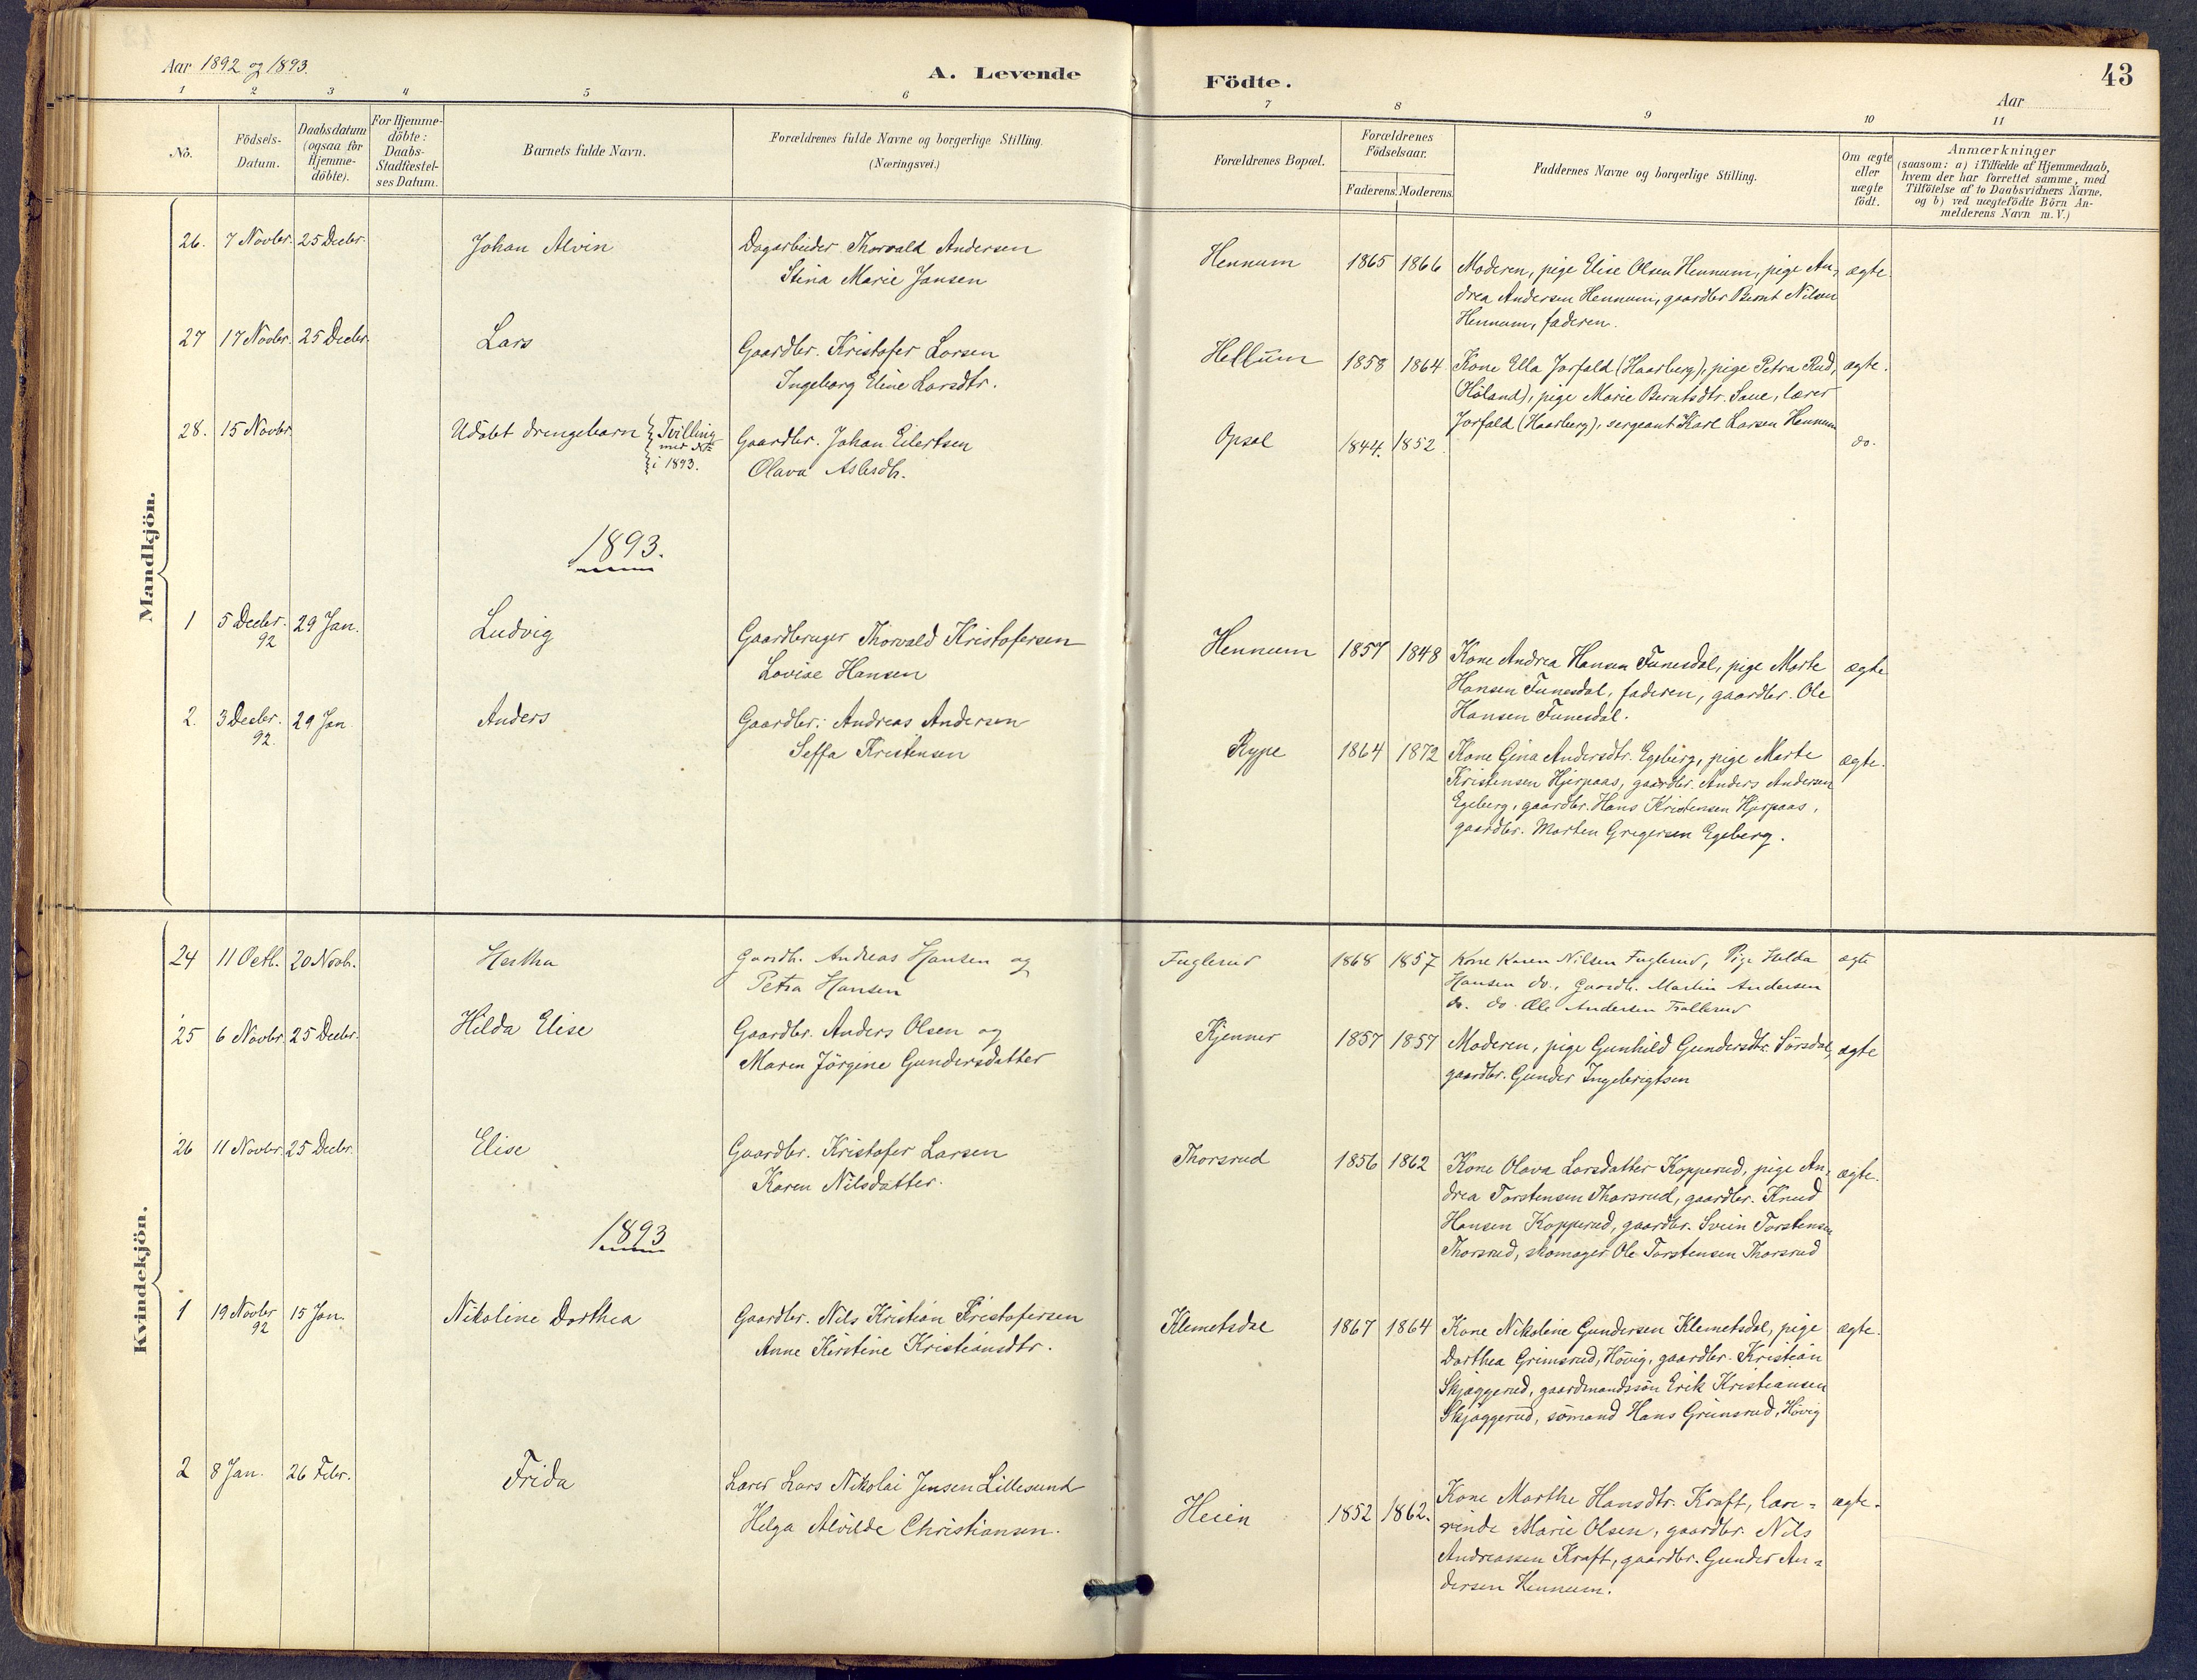 Aar 1892 og 1893.
A. Levende
Födte.
43
Aar
1 2 3 4 5 6 7 8 9 10 11
No.
Födsels-
Datum.
Daabsdatum
(ogsaa for
Hjemme-
döbte).
For Hjemme-
döbte:
Daabs-
Stadfæstel-
ses Datum.
Barnets fulde Navn.
Forældrenes fulde Navne og borgerlige Stilling.
(Næringsvei.)
Forældrenes Bopæl.
Forældrenes
Födselsaar.
Faderens. Moderens.
Faddernes Navne og borgerlige Stilling.
Om ægte
eller
uægte
födt.
Anmærkninger
(saasom: a) i Tilfælde af Hjemmedaab,
hvem der har forrettet samme, med
Tilföielse af to Daabsvidners Navne,
og b) ved uægtefödte Börn An-
melderens Navn m. V.)
Mandkjön.
26. 7 Novbr. 25 Decbr. Johan Alvin
Dagarbeider Thorvald Andersen
Stina Marie Jansen
Hennum 1865 1866
Moderen, pige Elise Olsen Hennum, pige An-
drea Andersen Hennum, gaardbr. Bernt Nilsen
Hennum, faderen.
ægte.
27 17 Novbr. 25 Decbr. Lars
Gaardbr. Kristofer Larsen
Ingeborg Eline Larsdtr.
Hellum 1858 1864
Kone Ella Jorfald (Haarberg), pige Petra Rud,
(Höland), pige Marie Berntsdtr. Saue, lærer
Jorfald (Haarberg), sergeant Karl Larsen Hennum
ægte.
28. 15 Novbr. Udöbt drengebarn Tvilling
med
i 1893.
Gaardbr. Johan Eilertsen
Olava
Opsal 1844. 1852.
do.
1893.
1 5 Decbr. 29 Jan. Ludvig
92
Gaardbruger Thorvald Kristofersen
Lovise Hansen
Hennum 1857 1848
Kone Andrea Hansen Funesdal, pige Marte
Hansen Funesdal, faderen, gaardbr. Ole
Hansen Funesdal.
ægte
2. 3 Decbr. 29 Jan. Anders
92.
Gaardbr. Andreas Andersen
Seffa Kristensen
Rype 1864 1872
Kone Gina Andersdtr. Egeberg, pige Marte
Kristensen Hjerpaas, gaardbr. Anders Andersen
Egeberg, gaardbr. Hans Kristensen Hjerpaas,
gaardbr. Morten Gregersen Egeberg.
ægte.
Kvindekjön.
24 11 Octb. 20 Novb. Hertha
Gaardb. Andreas Hansen og
Petra Hansen
Fuglerud 1868 1857
Kone Karen Nilsen Fuglerud, Pige Hulda
Hansen do., Gaardb. Martin Andersen
do. do. Ole Andersen
ægte
25 6 Novbr. 25 Decbr. Hilda Elise
Gaardbr. Anders Olsen og
Maren Jörgine Gundersdatter
Kjenner 1857 1857
Moderen, pige Gunhild Gundersdtr. Sörsdal,
gaardbr. Gunder Ingebrigtsen
ægte
26 11 Novbr. 25 Decbr. Elise
Gaardbr. Kristofer Larsen
Karen Nilsdatter.
Thorsrud 1856 1862
Kone Olava Larsdatter Kopperud, pige An-
drea Torstensen Thorsrud, gaardbr. Knud
Hansen Kopperud, gaardbr. Svein Torstensen
Thorsrud, skomager Ole Torstensen Thorsrud
ægte.
1893
1 19 Novbr. 15 Jan. Nikoline Dorthea
92
Gaardbr. Nils Kristian Kristofersen
Anne Kirstine Kristiansdtr.
Klemetsdal 1867 1864
Kone Nikoline Gundersen Klemetsdal, pige
Dorthea Grimsrud, Hövig, gaardbr. Kristian
Skjæggerud, gaardmandssön Erik Kristiansen
Skjæggerud, sömand Hans Grimsrud, Hövig
ægte.
2 8 Jan. 26 Febr. Frida
Lærer Lars Nikolai Jensen Lillesund
Helga Alvilde Christiansen.
Heien 1852 1862.
Kone Marthe Hansdtr. Kraft, lære-
rinde Marie Olsen, gaardbr. Nils
Andreassen Kraft, gaardbr. Gunder An-
dersen Hennum.
ægte.